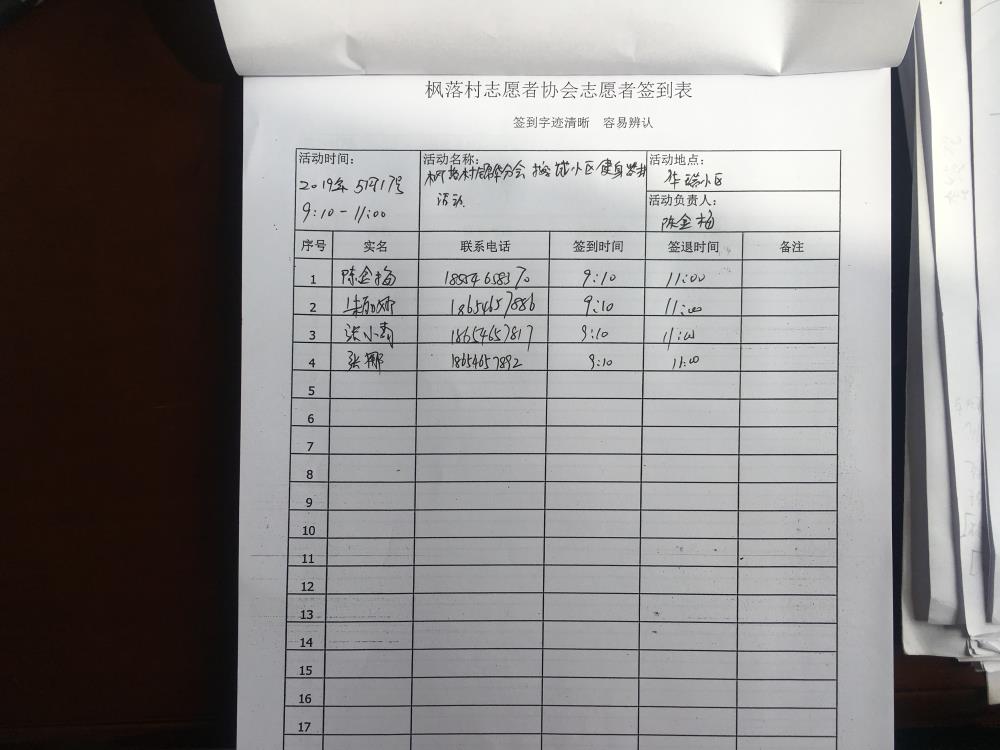 枫落村志愿者协会志愿者签到表
签到字迹清晰 容易辨认
活动时间: 2019年5月17号 9:10-11:00
活动名称: 小区健身器材 活动
活动地点: 华瑞小区
活动负责人: 陈金梅
序号 实名 联系电话 签到时间 签退时间 备注
1 陈金梅 18554658370 9:10 11:00
2 18654657886 9:10 11:00
3 张小青 18654657817 9:10 11:00
4 张娜 18654657892 9:10 11:00
5
6
7
8
9
10
11
12
13
14
15
16
17